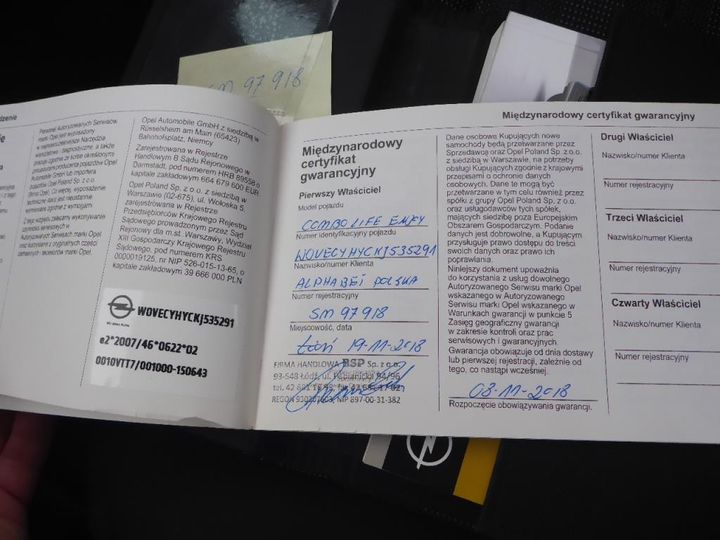 SM 97918
Personel Autoryzowanych Serwisów
marki Opel jest wyposażony
w najnowocześniejsze Narzędzia
Opel Automobile GmbH z siedzibą w
Rüsselsheim am Main (65423)
Bahnhofsplatz, Niemcy
Zarejestrowana w Rejestrze
Handlowym B Sądu Rejonowego w
Darmstadt, pod numerem HRB 89558 o
kapitale zakładowym 664 679 600 EUR
Opel Poland Sp. z o.o. z siedzibą w
Warszawie (02-675), ul. Wołoska 5,
zarejestrowana w Rejestrze
Przedsiębiorców Krajowego Rejestru
Sądowego prowadzonym przez Sąd
Rejonowy dla m.st. Warszawy, Wydział
XIII Gospodarczy Krajowego Rejestru
Sądowego, pod numerem KRS
0000019125, nr NIP 526-015-13-65, o
kapitale zakładowym 39 666 000 PLN
WOVECYHYCKJ535291
e2*2007/46*0622*02
0010YTT7/001000-150643
Międzynarodowy certyfikat gwarancyjny
Międzynarodowy
certyfikat
gwarancyjny
Pierwszy Właściciel
Model pojazdu
COMBO LIFE ENJOY
Numer identyfikacyjny pojazdu
WOVECYHYCKJ535291
Nazwisko/numer Klienta
ALPHABET POLSKA
Numer rejestracyjny
SM 97918
Miejscowość, data
Łódź 19-11-2018
FIRMA HANDLOWA BSP Sp. z o.o.
NIP 897-00-31-382
Dane osobowe Kupujących nowe
samochody będą przetwarzane przez
Sprzedawcę oraz Opel Poland Sp. z o.o.
z siedzibą w Warszawie, na potrzeby
obsługi Kupujących zgodnie z krajowymi
przepisami o ochronie danych
osobowych. Dane te mogą być
przetwarzane w tym celu również przez
spółki z grupy Opel Poland Sp. z o.o.
oraz usługodawców tych spółek,
mających siedzibę poza Europejskim
Obszarem Gospodarczym. Podanie
danych jest dobrowolne, a Kupującym
przysługuje prawo dostępu do treści
swoich danych oraz prawo ich
poprawiania.
Niniejszy dokument upoważnia
do korzystania z usług dowolnego
Autoryzowanego Serwisu marki Opel
wskazanego w Autoryzowanego
Serwisu marki Opel wskazanego w
Warunkach gwarancji w punkcie 5
Zasięg geograficzny gwarancji
w zakresie kontroli oraz prac
serwisowych i gwarancyjnych.
Gwarancja obowiązuje od dnia dostawy
lub pierwszej rejestracji, zależnie od
tego, co nastąpi wcześniej.
08-11-2018
Rozpoczęcie obowiązywania gwarancji.
Drugi Właściciel
Nazwisko/numer Klienta
Numer rejestracyjny
Trzeci Właściciel
Nazwisko/numer Klienta
Numer rejestracyjny
Czwarty Właściciel
Nazwisko/numer Klienta
Numer rejestracyjny